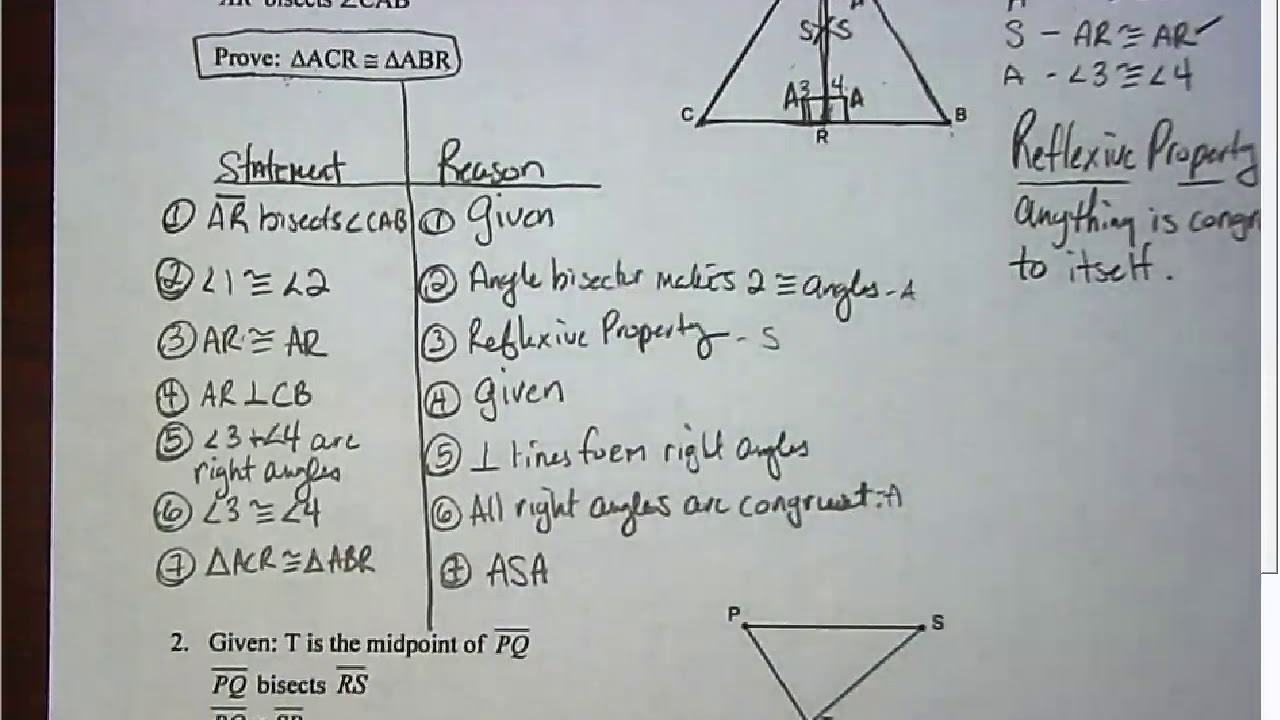 AR bisects ∠CAB
Prove: ΔACR ≅ ΔABR
S S
A 3 4 A
C B
R
S - AR ≅ AR ✓
A - ∠3 ≅ ∠4
Reflexive Property
anything is
to itself.
Statement Reason
① AR bisects ∠CAB ① Given
② ∠1 ≅ ∠2 ② Angle bisector makes 2 ≅ angles - A
③ AR ≅ AR ③ Reflexive Property - S
④ AR ⊥ CB ④ Given
⑤ ∠3 + ∠4 are
right angles ⑤ ⊥ lines form right angles
⑥ ∠3 ≅ ∠4 ⑥ All right angles are congruent - A
⑦ ΔACR ≅ ΔABR ⑦ ASA
P S
2. Given: T is the midpoint of PQ
PQ bisects RS